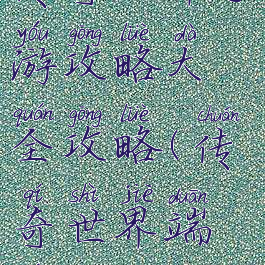 yóu gōng lüè dà
游攻略大
quán gōng lüè chuán
全攻略(传
qí shì jiè duān
奇世界端